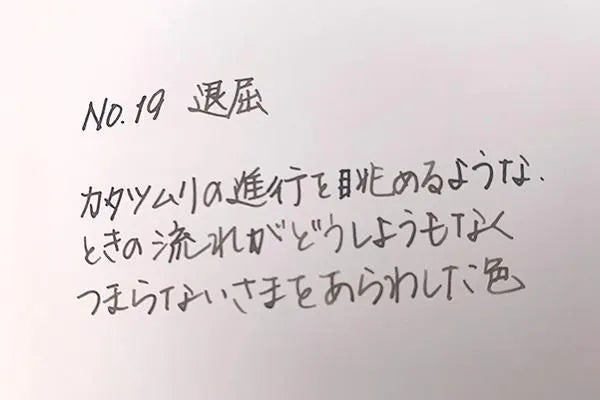 No.19 退屈
カタツムリの進行を眺めるような、
ときの流れがどうしようもなく
つまらないさまをあらわした色